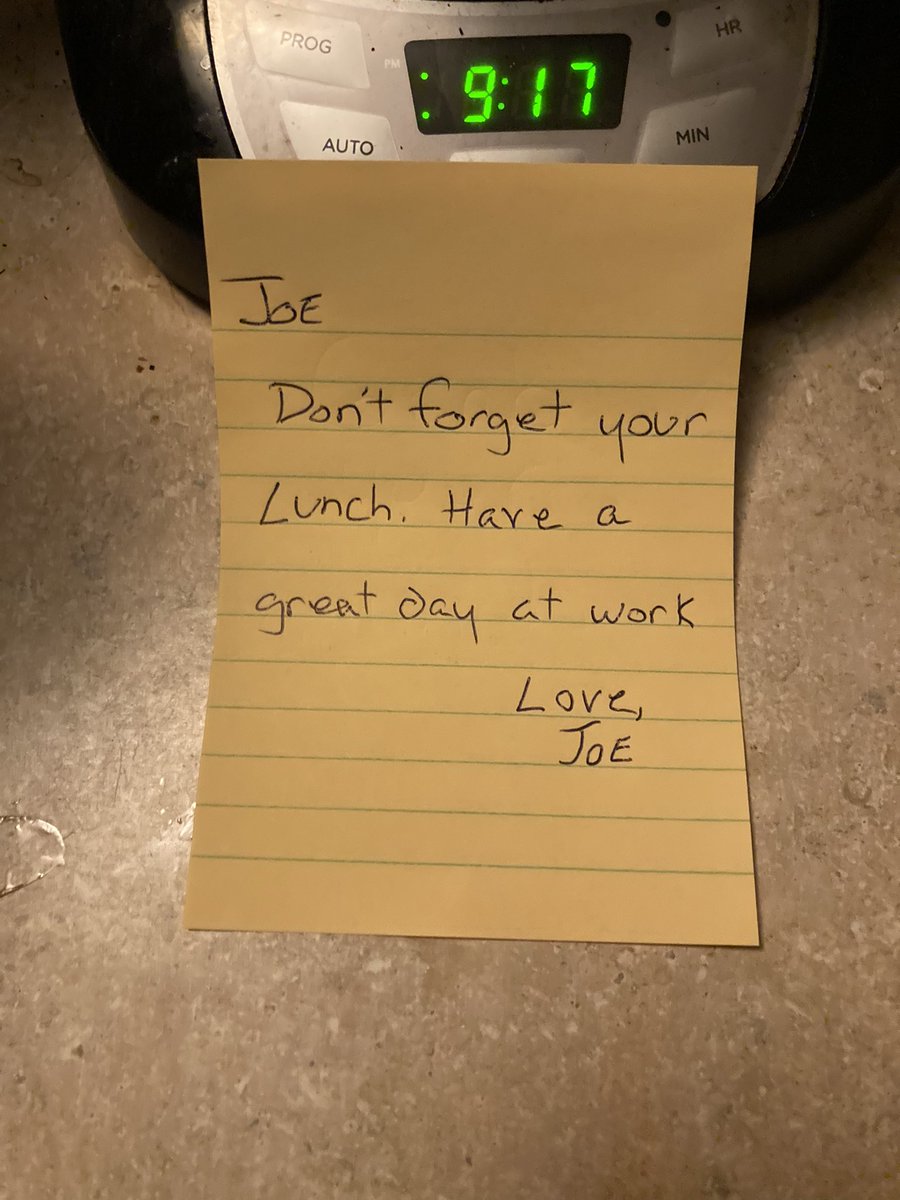 PROG
PM
9:17
HR
AUTO
MIN
JOE
Don't forget your
Lunch. Have a
great day at work
Love,
JOE